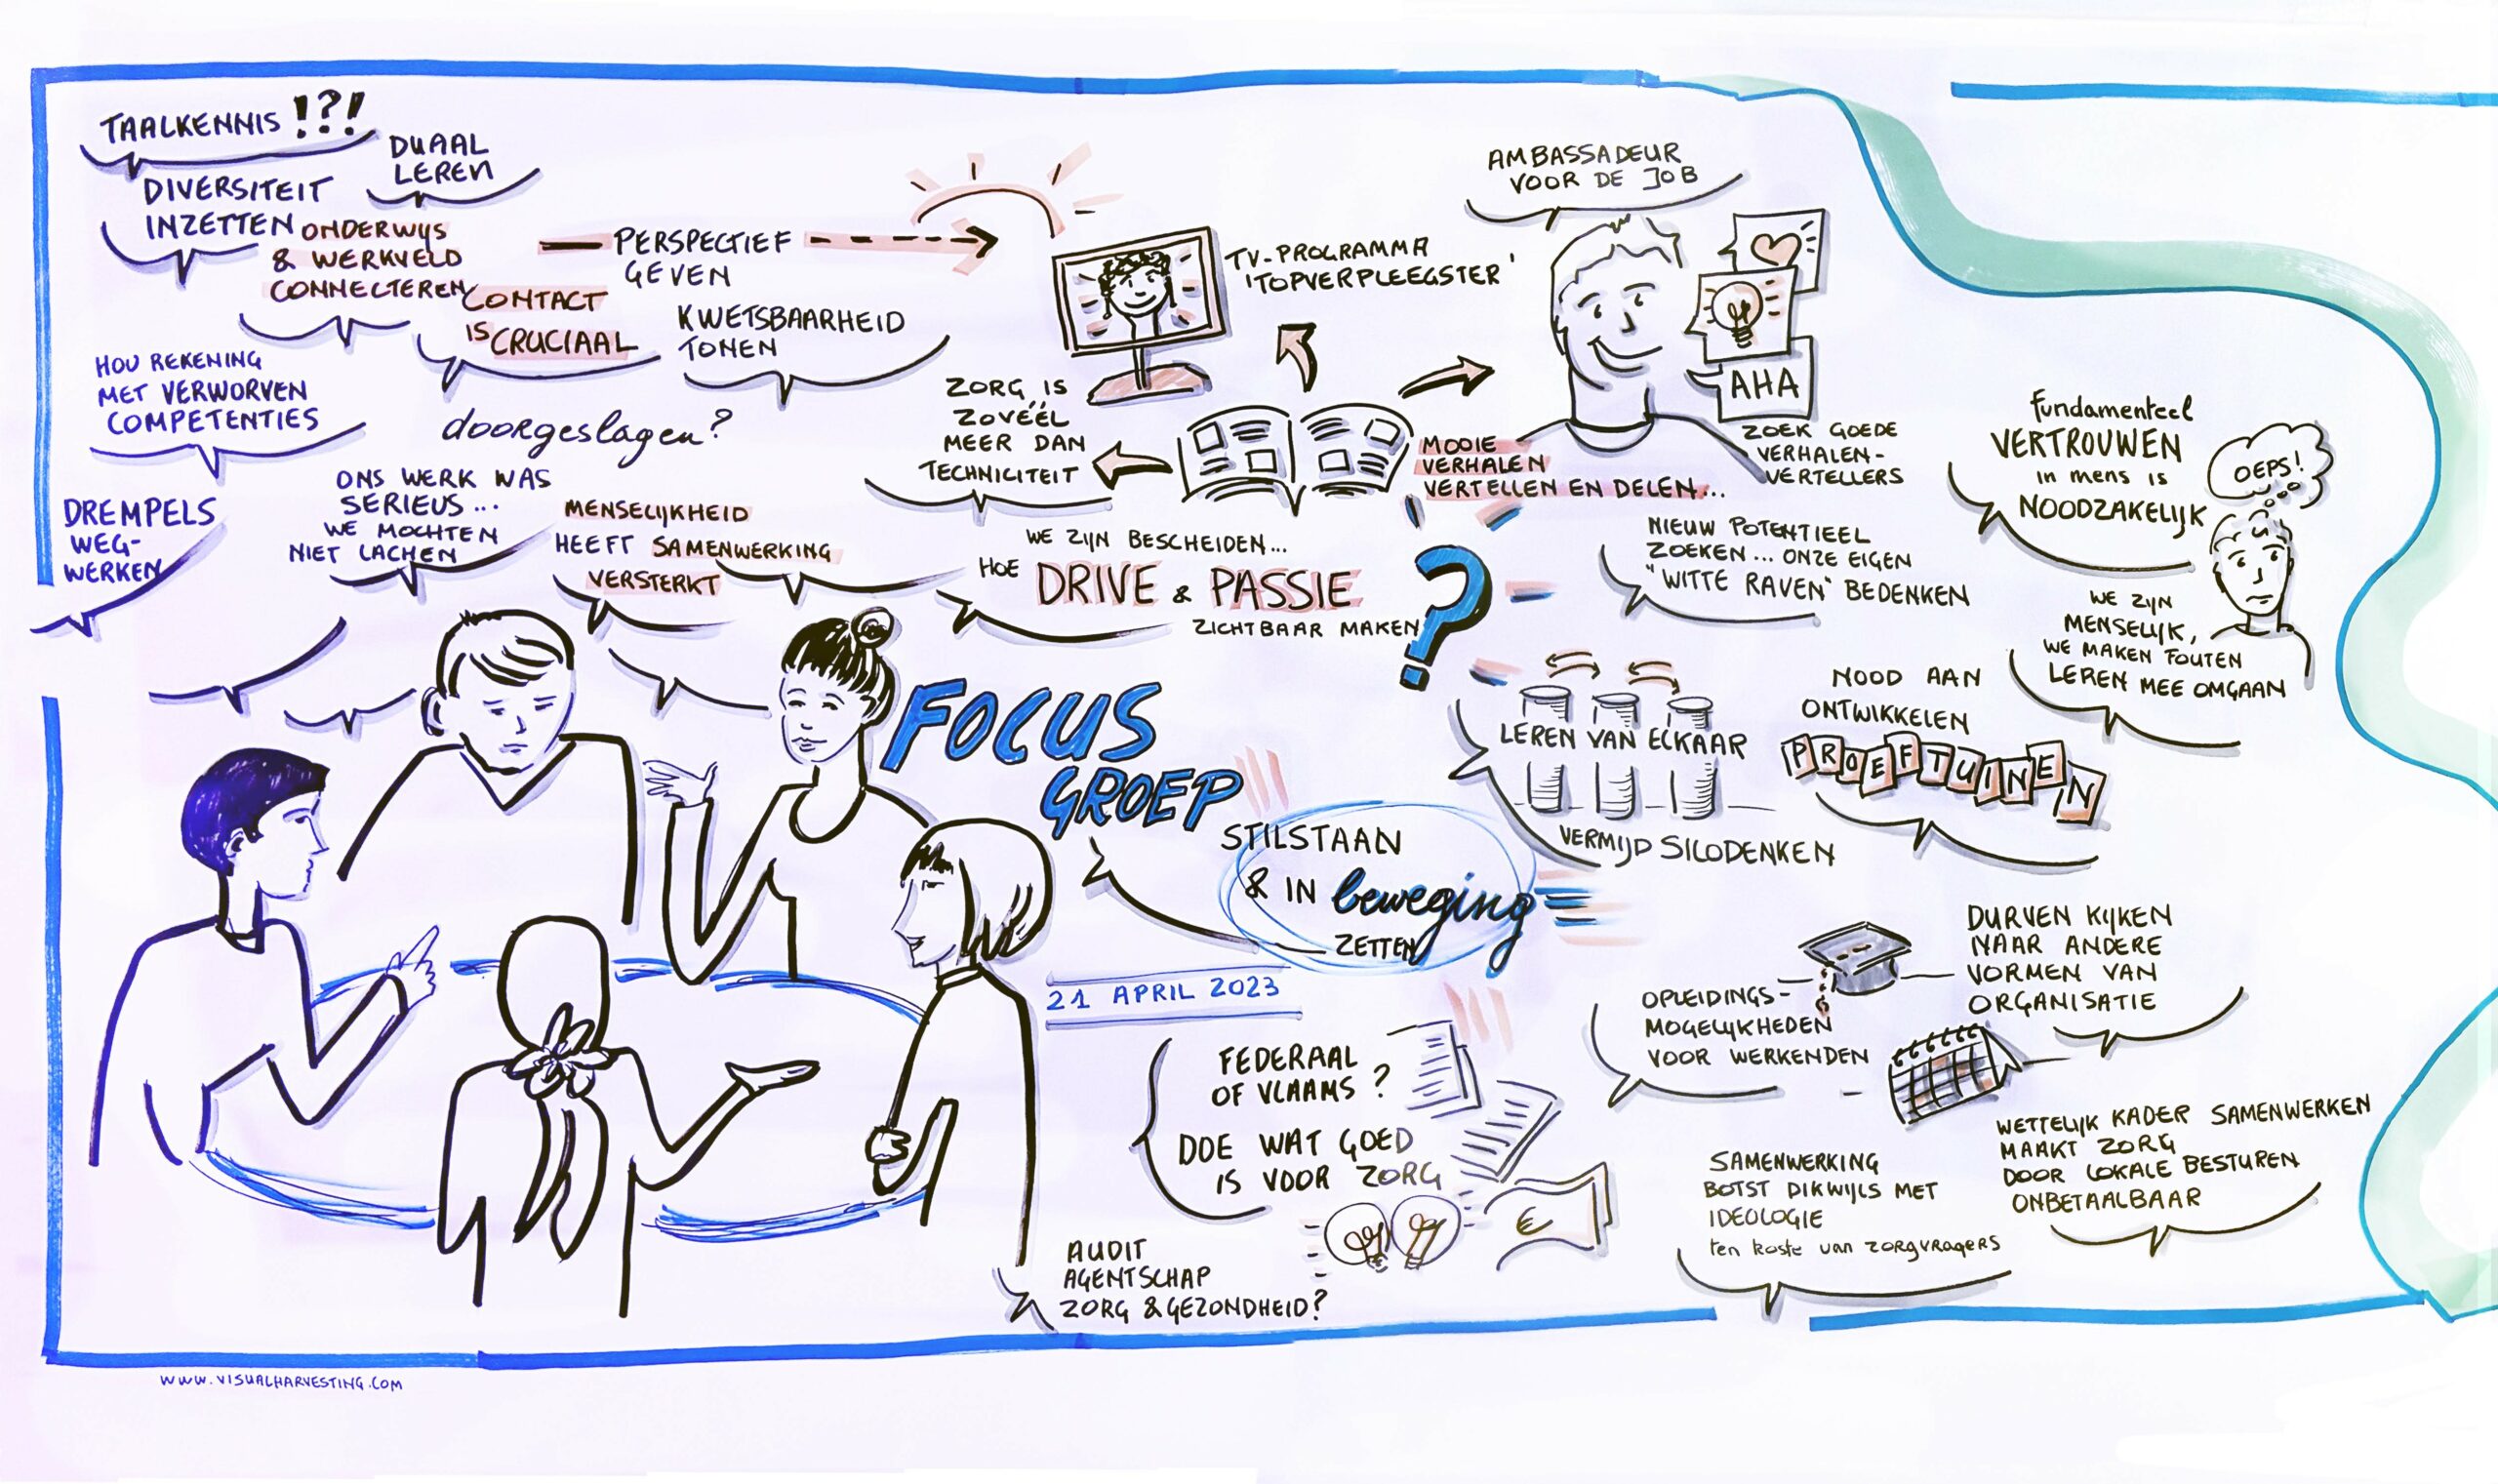 TAALKENNIS !?!
DUAAL
LEREN
DIVERSITEIT
INZETTEN
ONDERWIJS
& WERKVELD
CONNECTEREN
PERSPECTIEF
GEVEN
CONTACT
IS CRUCIAAL
KWETSBAARHEID
TONEN
HOU REKENING
MET VERWORVEN
COMPETENTIES
doorgeslagen?
DREMPELS
WEG-
WERKEN
ONS WERK WAS
SERIEUS ...
WE MOCHTEN
NIET LACHEN
MENSELIJKHEID
HEEFT SAMENWERKING
VERSTERKT
ZORG IS
ZOVÉÉL
MEER DAN
TECHNICITEIT
TV-PROGRAMMA
'TOPVERPLEEGSTER'
AMBASSADEUR
VOOR DE JOB
AHA
MOOIE
VERHALEN
VERTELLEN EN DELEN...
ZOEK GOEDE
VERHALEN-
VERTELLERS
WE ZIJN BESCHEIDEN...
HOE DRIVE & PASSIE
ZICHTBAAR MAKEN
?
NIEUW POTENTIEEL
ZOEKEN... ONZE EIGEN
"WITTE RAVEN" BEDENKEN
fundamenteel
VERTROUWEN
in mens is
NOODZAKELIJK
OEPS!
WE ZIJN
MENSELIJK,
WE MAKEN FOUTEN
LEREN MEE OMGAAN
FOCUS
GROEP
STILSTAAN
& IN beweging
ZETTEN
21 APRIL 2023
LEREN VAN ELKAAR
VERMIJD SILODENKEN
NOOD AAN
ONTWIKKELEN
PROEFTUINEN
OPLEIDINGS-
MOGELIJKHEDEN
VOOR WERKENDEN
DURVEN KIJKEN
NAAR ANDERE
VORMEN VAN
ORGANISATIE
FEDERAAL
OF VLAAMS ?
DOE WAT GOED
IS VOOR ZORG
€
AUDIT
AGENTSCHAP
ZORG & GEZONDHEID?
SAMENWERKING
BOTST DIKWIJLS MET
IDEOLOGIE
ten koste van zorgvragers
WETTELIJK KADER SAMENWERKEN
MAAKT ZORG
DOOR LOKALE BESTUREN
ONBETAALBAAR
WWW.VISUALHARVESTING.COM